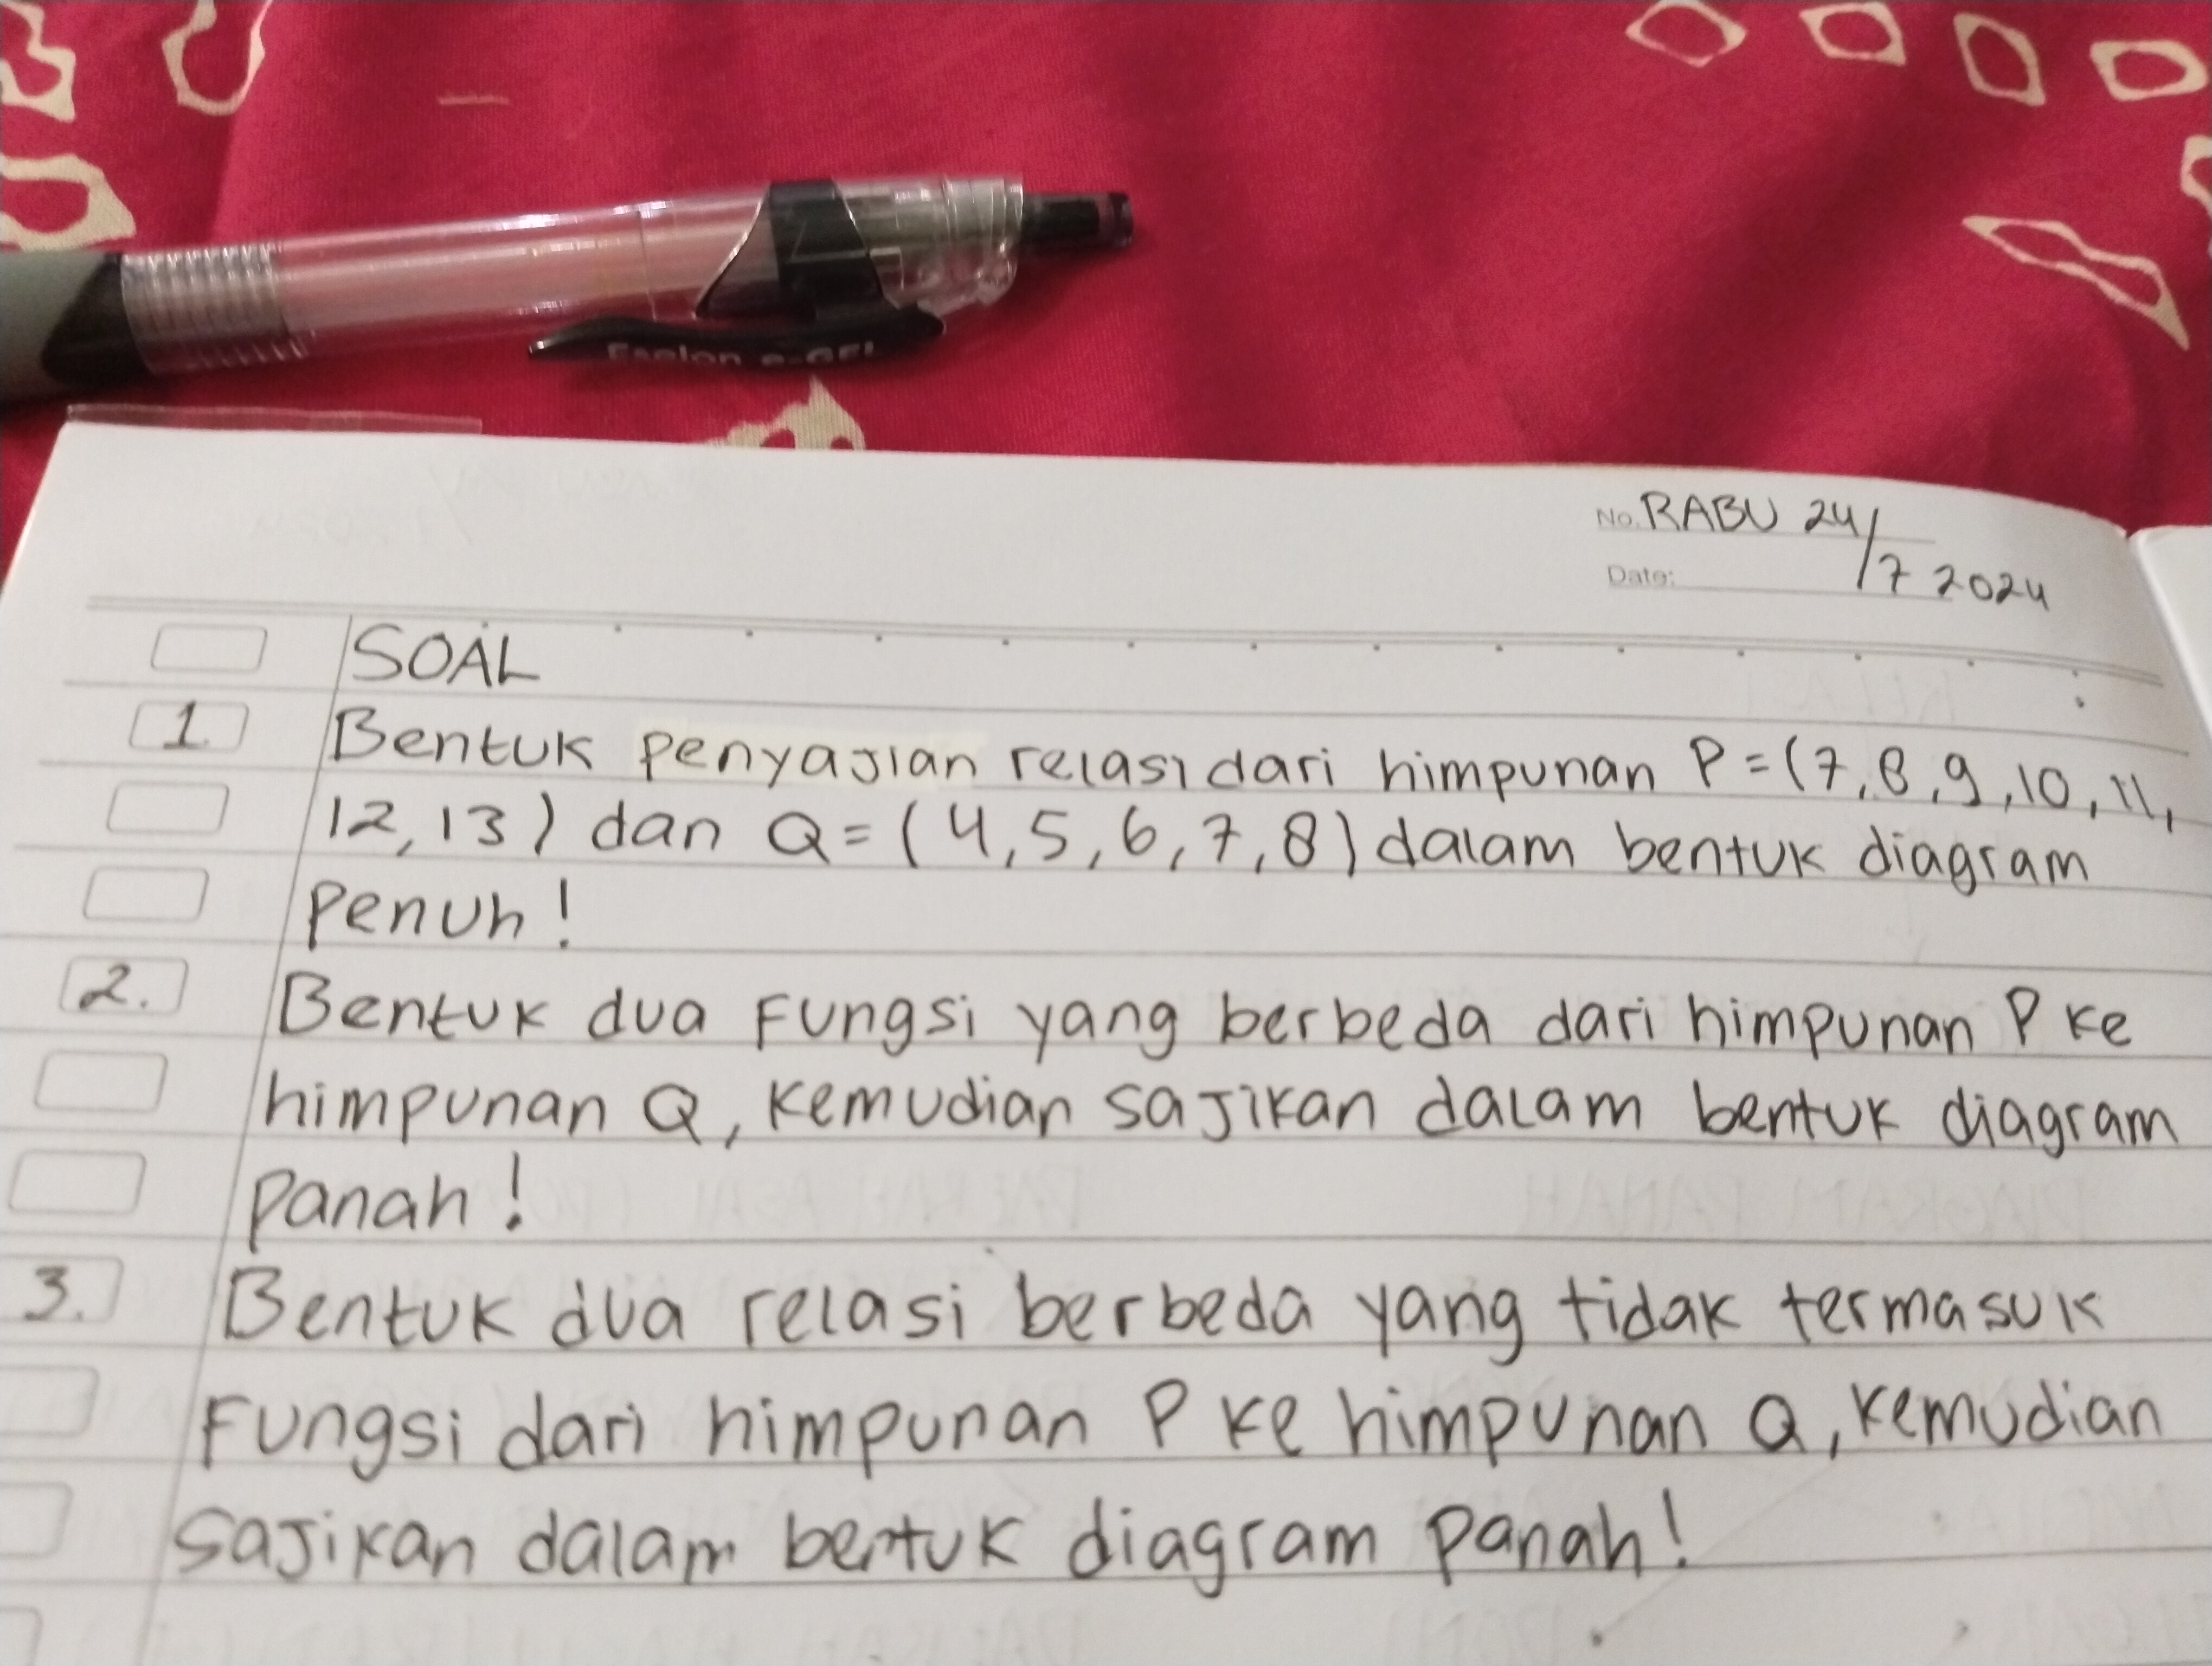 Faslon e-GEL
No. RABU 24/7 2024
Date:
SOAL
1. Bentuk penyajian relasi dari himpunan P = (7, 8, 9, 10, 11,
12, 13) dan Q = (4, 5, 6, 7, 8) dalam bentuk diagram
penuh!
2. Bentuk dua Fungsi yang berbeda dari himpunan P ke
himpunan Q, kemudian sajikan dalam bentuk diagram
panah!
3. Bentuk dua relasi berbeda yang tidak termasuk
Fungsi dari himpunan P ke himpunan Q, kemudian
sajikan dalam bentuk diagram panah!